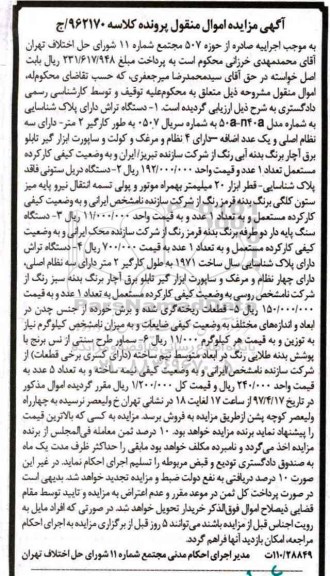 آگهی مزایده اموال منقول پرونده کلاسه ۹۶۲۱۷۰/ج
به موجب اجراییه صادره از حوزه ۵۰۷ مجتمع شماره ۱۱ شورای حل اختلاف تهران
آقای محمدمهدی خرزانی محکوم است به پرداخت مبلغ ۲۳۱/۶۱۷/۹۴۸ ریال بابت
اصل خواسته در حق آقای سیدمحمدرضا میرجعفری، که حسب تقاضای محکوم‌له،
اموال منقول مشروحه ذیل متعلق به محکوم‌علیه توقیف و توسط کارشناس رسمی
دادگستری به شرح ذیل ارزیابی گردیده است. ۱- دستگاه تراش دارای پلاک شناسایی
به شماره مدل به شماره سریال ۰۵۰۷ به طول کارگیر ۲ متر- دارای سه
نظام اصلی و یک عدد اضافه -دارای ۴ نظام و مرغک و کولت و ساپورت ابزار گیر تابلو
برق آچار برنگ بدنه آبی رنگ از شرکت سازنده تبریز/ ایران و به وضعیت کیفی کارکرده
مستعمل تعداد ۱ عدد و به قیمت واحد ۱۹۲/۰۰۰/۰۰۰ ریال ۲- دستگاه دریل ستونی فاقد
پلاک شناسایی- قطر ابزار ۲۰ میلیمتر بهمراه موتور و پولی تسمه انتقال نیرو پایه میز
ستون گلگی برنگ بدنه قرمز رنگ از شرکت سازنده نامشخص ایرانی و به وضعیت کیفی
کارکرده مستعمل و به تعداد ۱ عدد و به قیمت واحد ۱۱/۰۰۰/۰۰۰ ریال ۳- دستگاه
سنگ پایه دار دو طرفه برنگ بدنه قرمز رنگ از شرکت سازنده محک ایرانی و به وضعیت
کیفی کارکرده مستعمل و به تعداد ۱ عدد به قیمت ۷۰۰/۰۰۰ ریال ۴- دستگاه تراش
دارای پلاک شناسایی سال ساخت ۱۹۷۱ به طول کارگیر ۲ متر دارای سه نظام اصلی،
دارای چهار نظام و مرغک و ساپورت ابزار گیر تابلو برق آچار برنگ بدنه سبز رنگ از
شرکت نامشخص روسی به وضعیت کیفی کارکرده مستعمل به تعداد ۱ عدد و به قیمت
۱۵۰/۰۰۰/۰۰۰ ریال ۵- قطعات ریخته‌گری شده و برش خورده از جنس چدن در
ابعاد و اندازه‌های مختلف به وضعیت کیفی ضایعات و به میزان نامشخص کیلوگرم نیاز
به توزین و به قیمت هر کیلوگرم ۱۱/۰۰۰ ریال ۶- سماور طرح سنتی از نس برنج با
پوشش بدنه طلایی رنگ در ابعاد متوسط نیم ساخته (دارای کسری برخی قطعات) از
شرکت سازنده نامشخص ایرانی و به وضعیت کیفی نیمه ساخته و به تعداد ۵ عدد به
قیمت واحد ۲۴۰/۰۰۰ ریال و قیمت کل ۱/۲۰۰/۰۰۰ ریال مقرر گردیده اموال مذکور
در تاریخ ۹۷/۴/۱۷ از ساعت ۱۷ لغایت ۱۸ در نشانی تهران خ ولیعصر نرسیده به چهارراه
ولیعصر کوچه پشن ازطریق مزایده به فروش برسد. مزایده به کسی که بالاترین قیمت
را پیشنهاد نماید برنده مزایده خواهد بود. ۱۰ درصد ثمن معامله فی‌المجلس از برنده
مزایده اخذ می‌گردد و نامبرده مکلف خواهد بود مابقی را حداکثر ظرف مدت یک ماه
به صندوق دادگستری تودیع و قبض مربوطه را تسلیم اجرای احکام نماید. در غیر این
صورت ۱۰ درصد دریافتی به نفع دولت ضبط و مزایده تجدید خواهد شد. بدیهی است
در صورت پرداخت کل ثمن در موعد مقرر و عدم اعتراض به مزایده و تایید توسط مقام
قضایی ذیصلاح اموال فوق‌الذکر خریدار تحویل خواهد شد. در صورتی که افراد مایل به
رویت اجناس قبل از مزایده باشند می‌توانند ۵ روز قبل از برگزاری مزایده به اجرای احکام
مراجعه، امکان بازدید آنها فراهم گردد.
۱۱۰/۲۸۸۴۹ت مدیر اجرای احکام مدنی مجتمع شماره ۱۱ شورای حل اختلاف تهران